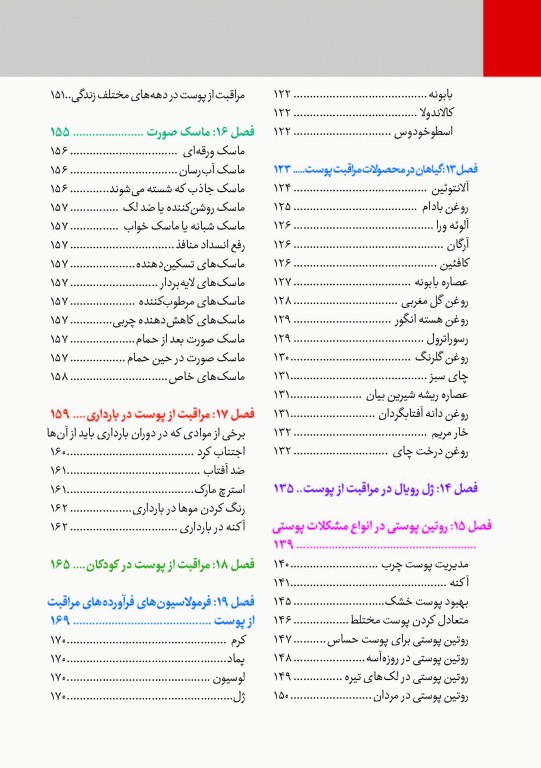 بابونه ........................................ ۱۲۲
کالاندولا ..................................... ۱۲۲
اسطوخودوس .............................. ۱۲۲
فصل ۱۳: گیاهان در محصولات مراقبت پوست..... ۱۲۳
آلانتوئین ..................................... ۱۲۴
روغن بادام .................................. ۱۲۵
آلوئه ورا ...................................... ۱۲۶
آرگان .......................................... ۱۲۶
کافئین ........................................ ۱۲۶
عصاره بابونه ................................ ۱۲۷
روغن گل مغربی ............................ ۱۲۸
روغن هسته انگور .......................... ۱۲۹
رسوراترول ................................... ۱۲۹
روغن گلرنگ ................................ ۱۳۰
چای سبز ..................................... ۱۳۱
عصاره ریشه شیرین بیان ................. ۱۳۱
روغن دانه آفتابگردان ..................... ۱۳۱
خار مریم ..................................... ۱۳۲
روغن درخت چای ......................... ۱۳۲
فصل ۱۴: ژل رویال در مراقبت از پوست.. ۱۳۵
فصل ۱۵: روتین پوستی در انواع مشکلات پوستی
........................................................ ۱۳۹
مدیریت پوست چرب ...................... ۱۴۰
آکنه ........................................... ۱۴۱
بهبود پوست خشک......................... ۱۴۵
متعادل کردن پوست مختلط .............. ۱۴۶
روتین پوستی برای پوست حساس .......... ۱۴۷
روتین پوستی در روزه‌آسه .................. ۱۴۸
روتین پوستی در لک‌های تیره ............. ۱۴۹
روتین پوستی در مردان .................... ۱۵۰
مراقبت از پوست در دهه‌های مختلف زندگی..۱۵۱
فصل ۱۶: ماسک صورت ...................... ۱۵۵
ماسک ورقه‌ای ............................... ۱۵۶
ماسک آب‌رسان .............................. ۱۵۶
ماسک جاذب که شسته می‌شوند............ ۱۵۶
ماسک روشن‌کننده یا ضد لک ............ ۱۵۷
ماسک شبانه یا ماسک خواب ............. ۱۵۷
رفع انسداد منافذ............................. ۱۵۷
ماسک‌های تسکین‌دهنده.................... ۱۵۷
ماسک‌های لایه‌بردار ........................ ۱۵۷
ماسک‌های مرطوب‌کننده .................. ۱۵۷
ماسک‌های کاهش‌دهنده چربی............. ۱۵۷
ماسک صورت بعد از حمام................. ۱۵۷
ماسک صورت در حین حمام .............. ۱۵۷
ماسک‌های خاص............................ ۱۵۸
فصل ۱۷: مراقبت از پوست در بارداری.... ۱۵۹
برخی از موادی که در دوران بارداری باید از آن‌ها
اجتناب کرد ................................... ۱۶۰
ضد آفتاب .................................... ۱۶۱
استرچ مارک...................................۱۶۱
رنگ کردن موها در بارداری................. ۱۶۲
آکنه در بارداری .............................. ۱۶۲
فصل ۱۸: مراقبت از پوست در کودکان.... ۱۶۵
فصل ۱۹: فرمولاسیون‌های فرآورده‌های مراقبت
از پوست ........................................ ۱۶۹
کرم ............................................ ۱۷۰
پماد............................................ ۱۷۰
لوسیون ....................................... ۱۷۰
ژل............................................. ۱۷۰